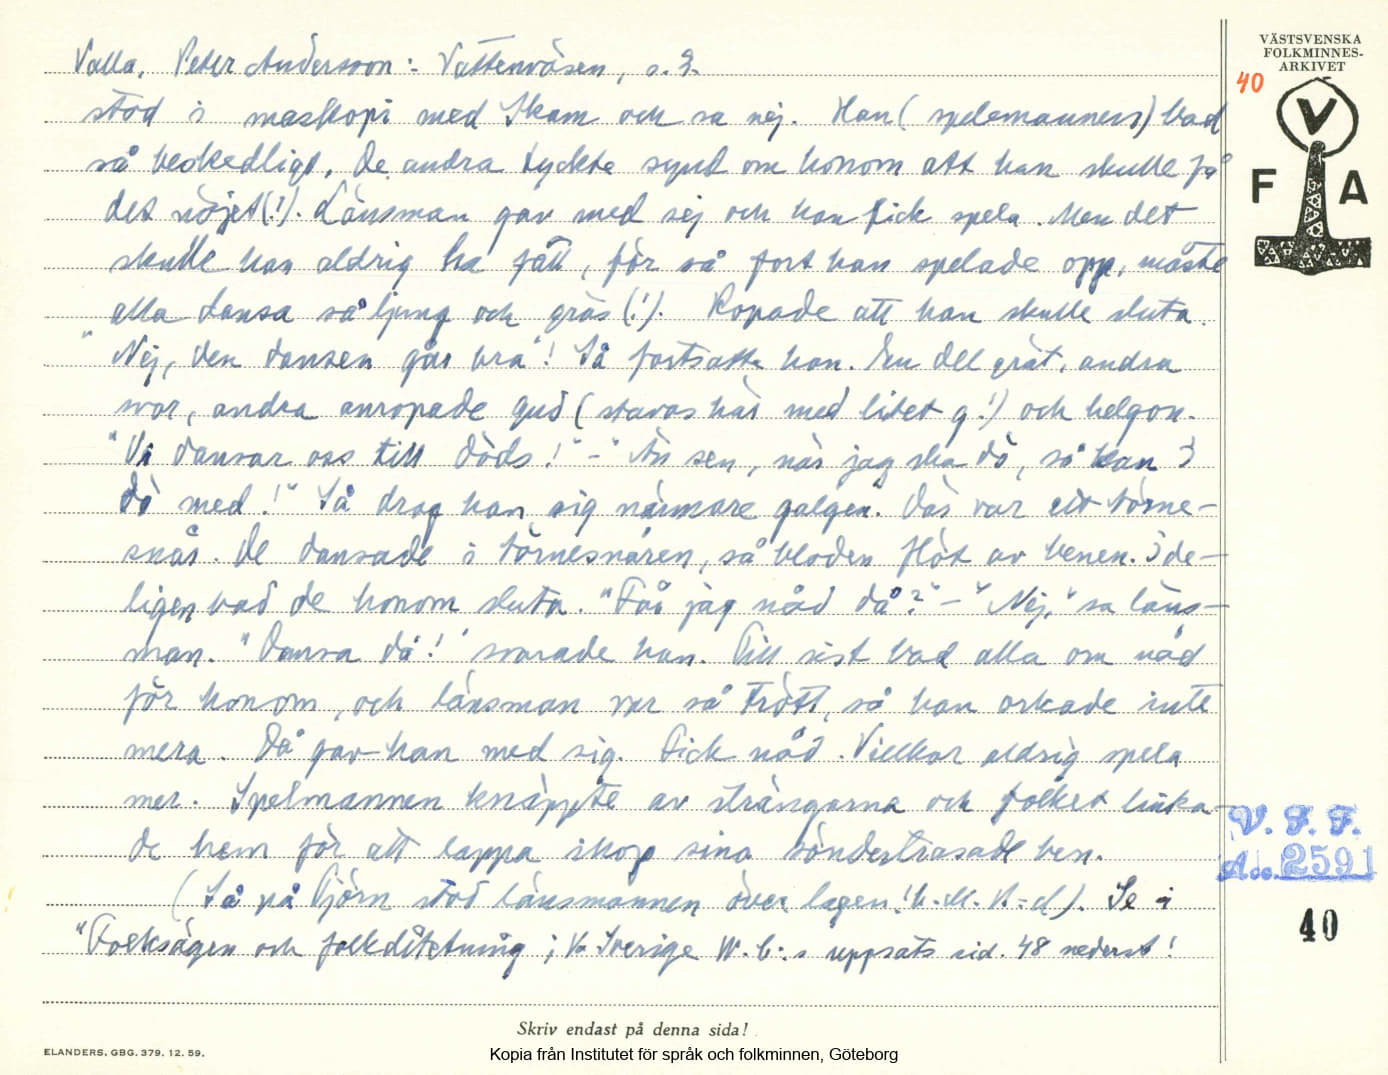 VÄSTSVENSKA
FOLKMINNES-
ARKIVET
40
V
F A
Valla, Peter Andersson :- Vattenväsen, s. 3.
stod i maskopi med Skam och sa nej. Han (spelemannen) bad
så beskedligt. De andra tyckte synd om honom att han skulle få
det nöjet(!). Länsman gav med sej och han fick spela. Men det
skulle han aldrig ha fått, för så fort han spelade opp, måste
alla dansa så ljung och gräs (!). Ropade att han skulle sluta.
"Nej, den dansen går bra"! Så fortsatte han. En del grät, andra
svor, andra anropade gud (stavas här med litet g!) och helgon.
"Vi dansar oss till döds!" - "Än sen, när jag ska dö, så kan I
dö med!" Så drog han sig närmare galgen. Där var ett törne-
snår. De dansade i törnesnåren, så bloden flöt av benen. Ide-
ligen bad de honom sluta. "Får jag nåd då?" - "Nej," sa läns-
man. "Dansa då!" svarade han. Till sist bad alla om nåd
för honom, och länsman var så trött, så han orkade inte
mera. Då gav han med sig. Fick nåd. Villkor aldrig spela
mer. Spelmannen knäppte av strängarna och folket linka-
de hem för att lappa ihop sina söndertrasade ben.
(Så på Tjörn stod länsmannen över lagen!
Se i
"Folksägen och folkdiktning i V. Sverige W. L:s uppsats sid. 48 nederst!
V. F. F.
Acc. 2591
40
Skriv endast på denna sida!
ELANDERS. GBG. 379. 12. 59.
Kopia från Institutet för språk och folkminnen, Göteborg